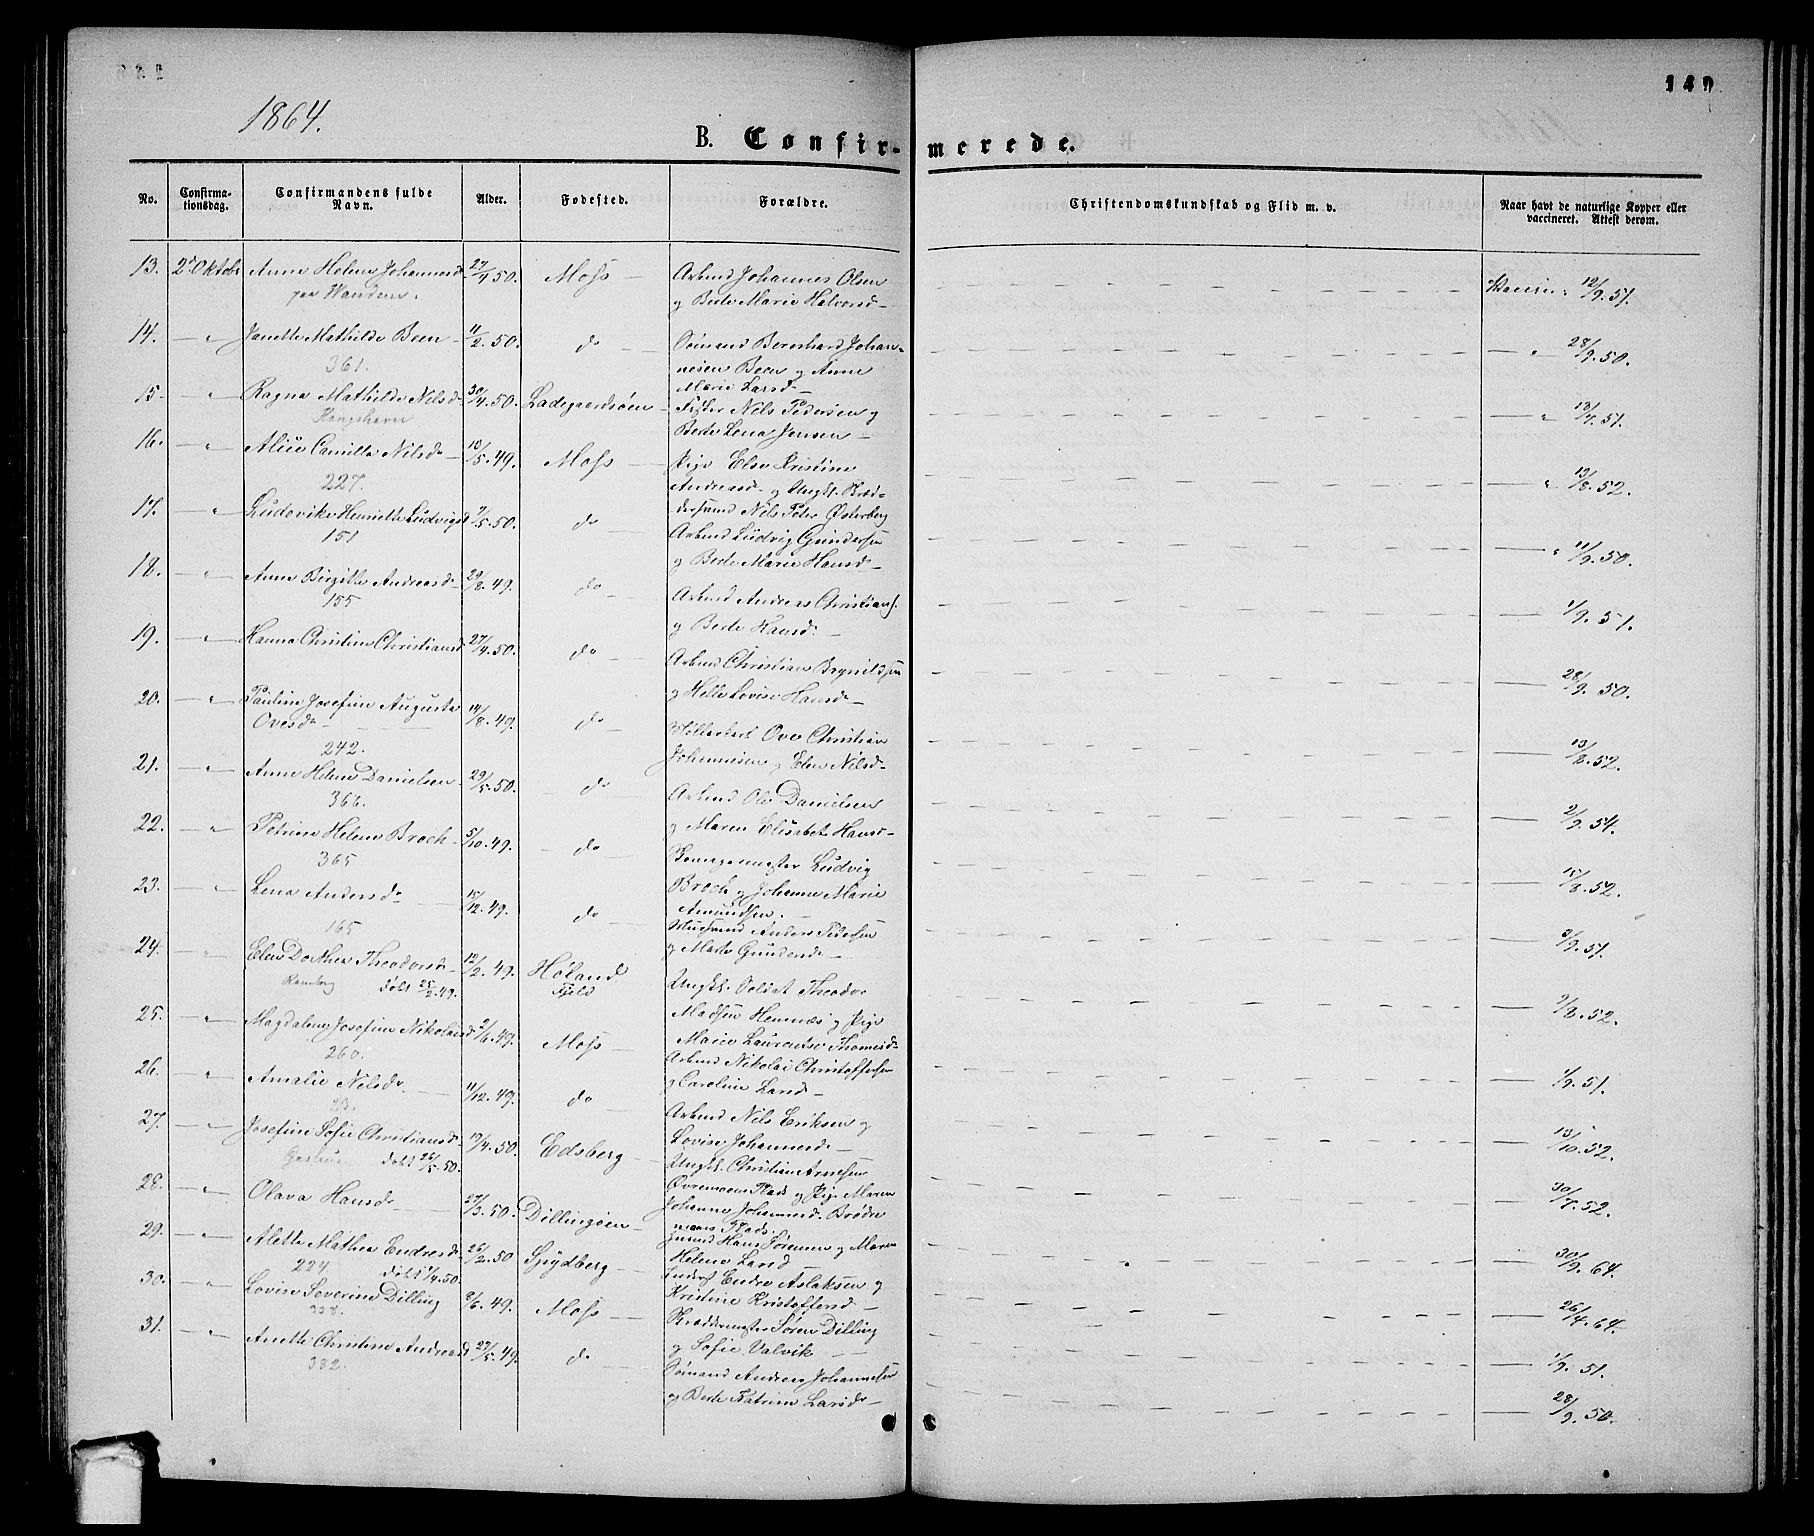 149
1864.
B. Confir-merede.
No. Confirma-tionsdag. Confirmandens fulde Navn. Alder. Fødested. Forældre. Christendomskundskab og Flid m. v. Naar havt de naturlige Kopper eller vaccineret. Attest derom.
13. 2' Oktobr Anne Helene Johannesd 27/4 50. Moss Arbmd Johannes Olsen 12/9. 51.
paa Wanden. og Berte Marie Halvorsd-
14. — " Janette Mathilde Been 11/2. 50. do Sømand Bernhard Johan- — " 28/9. 50.
361. nesen Been og Anne
Marie Larsd-
15. — " Ragna Mathilde Nilsd 30/4. 50. Ladegaardsøen Fisker Nils Pedersen og — " 18/7. 51.
Kongshavn Berte Lena Jensen-
16. — " Alice Camilla Nilsdr 10/5. 49. Moss Pige Else Kristine — " 13/8. 52.
227. Andreasd- og Ungk. Skræd-
dersvend Nils Peter Østerberg
17. — " Ludovike Henriette Ludvigsd 7/5. 50. do Arbmd Ludvig Gundersen — " 11/9. 50.
151 og Berte Marie Hansd-
18. — " Anne Birgitte Andreasd 29/8. 49. do Arbmd Andreas Christians. — 1/9. 51.
155 og Berte Hansd.
19. — " Hanna Christine Christiansd 27/4. 50. do Arbmd Christian Brynildsen — 28/9. 50.
og Helle Lovise Hansd-
20. — " Pauline Josefine Augusta 14/8. 49. do Møllerkarl Ove Christian — 13/8. 52.
Ovesdr Johannesen og Elen Nilsd-
242.
21. — " Anne Helene Danielsen 29/5. 50. do Arbmd Ole Danielsen — 2/9. 54.
366. og Maren Elisabet Hansd-
22. — " Petrine Helene Broch 5/10. 49. do Ludvig — 15/8. 52.
365 Broch og Johanne Marie
Amundsen.
23. — " Lena Andersdr 15/12. 49. do Anders Pedersen — 3/9. 51.
165 og Marte Gundersd-
24. — " Elen Dorthea Theodorsd 12/2. 49. Høland Ungk. Soldat Theodor — 9/8. 52.
døbt 25/2. 49. Fjeld Madsen Hemnæs og Pige
Marie Laurentse Thomesd-
25. — " Magdalene Josefine Nikolaisd 9/6. 49. Moss Arbmd Nikolai Christoffersen — 1/9. 51.
260. og Caroline Larsd-
26. — " Amalie Nilsdr 11/12. 49. do Arbmd Nils Eriksen og — 13/10. 52.
23. Lovise Johannesd-
27. — " Josefine Sofie Christiansd 17/4. 50. Edsberg Ungk. Christian Arnesen — 30/7. 52.
døbt 26/5. 50. Øvremoens Plads og Pige Maren
Johanne Johannesd. Brødre
moens Plads.
28. — " Olava Hansd 27/3. 50. Dillingøen Hans Sørensen og Maren — 30/9. 64.
Helene Larsd
29. — " Alette Mathea Endresd 26/2. 50 Spydberg Inderst Endre Aslaksen og — 26/4. 64.
224 døbt 1/4. 50. Kristine Kristoffersd-
30. — " Lovise Severine Dilling 8/6. 49. Moss Skræddermester Søren Dilling — 1/9. 51.
338. og Sofie Valvik
31. — " Anette Christine Andreasd 27/5. 49. do Sømand Andreas Johannesen — 28/9. 50.
382. og Berte Katrine Larsdr-